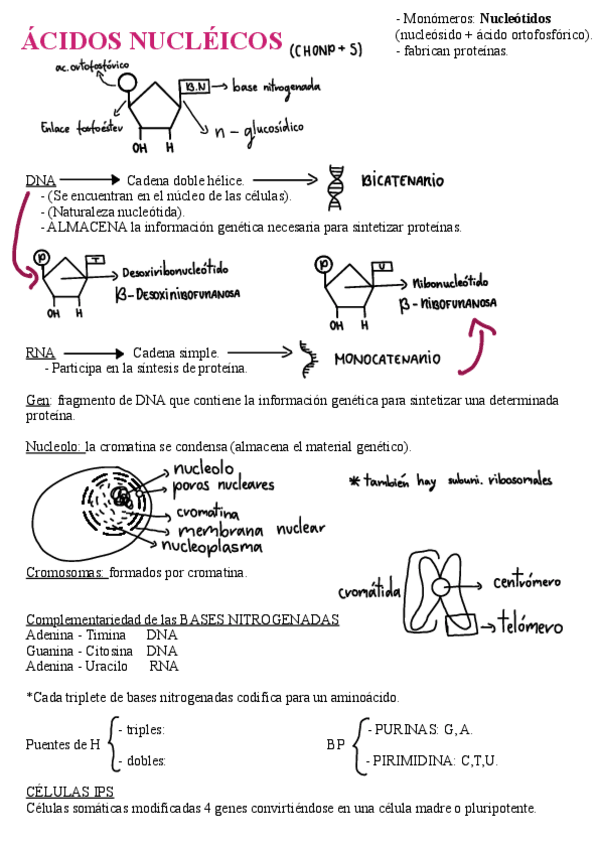 ÁCIDOS NUCLÉICOS (CHONP + S)
- Monómeros: Nucleótidos
(nucleósido + ácido ortofosfórico).
- fabrican proteínas.
ac. ortofosfórico
B.N
base nitrogenada
Enlace fosfoéster
n - glucosídico
OH H
DNA Cadena doble hélice. BICATENARIO
- (Se encuentran en el núcleo de las células).
- (Naturaleza nucleótida).
- ALMACENA la información genética necesaria para sintetizar proteínas.
P T
Desoxirribonucleótido
β-DESOXIRRIBOFURANOSA
OH H
P U
Ribonucleótido
β-RIBOFURANOSA
OH H
RNA Cadena simple. MONOCATENARIO
- Participa en la síntesis de proteína.
Gen: fragmento de DNA que contiene la información genética para sintetizar una determinada
proteína.
Nucleolo: la cromatina se condensa (almacena el material genético).
nucleolo
poros nucleares
cromatina
membrana nuclear
nucleoplasma
* también hay subuni. ribosomales
Cromosomas: formados por cromatina.
cromátida
centrómero
telómero
Complementariedad de las BASES NITROGENADAS
Adenina - Timina DNA
Guanina - Citosina DNA
Adenina - Uracilo RNA
*Cada triplete de bases nitrogenadas codifica para un aminoácido.
Puentes de H
- triples:
- dobles:
BP
- PURINAS: G,A.
- PIRIMIDINA: C,T,U.
CÉLULAS IPS
Células somáticas modificadas 4 genes convirtiéndose en una célula madre o pluripotente.